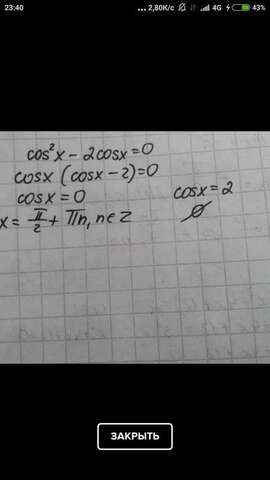 23:40
... 2,80K/c 4G 43%
cos²x - 2cosx = 0
cosx (cosx - 2) = 0
cosx = 0
cosx = 2
x = π/2 + πn, n∈Z
∅
ЗАКРЫТЬ